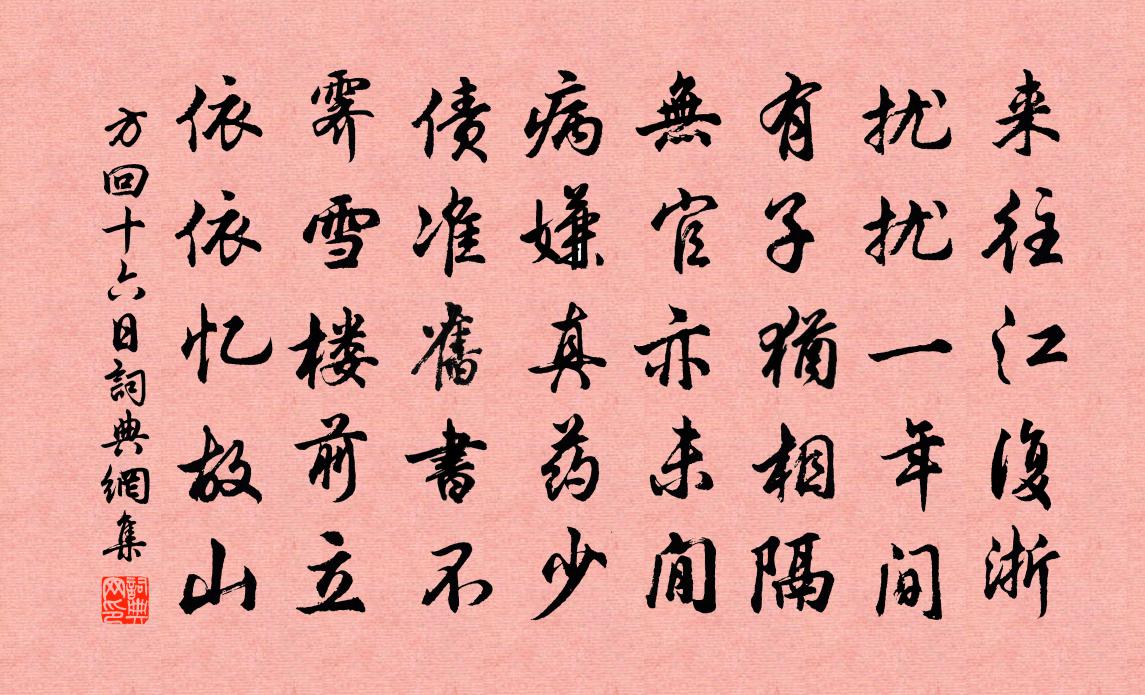 来往江復浙
扰扰一年间
有子猶相隔
無官亦未閒
病嫌真药少
债准舊書不
霁雪楼前立
依依忆故山
方回十六日詞典網集
詞典网印